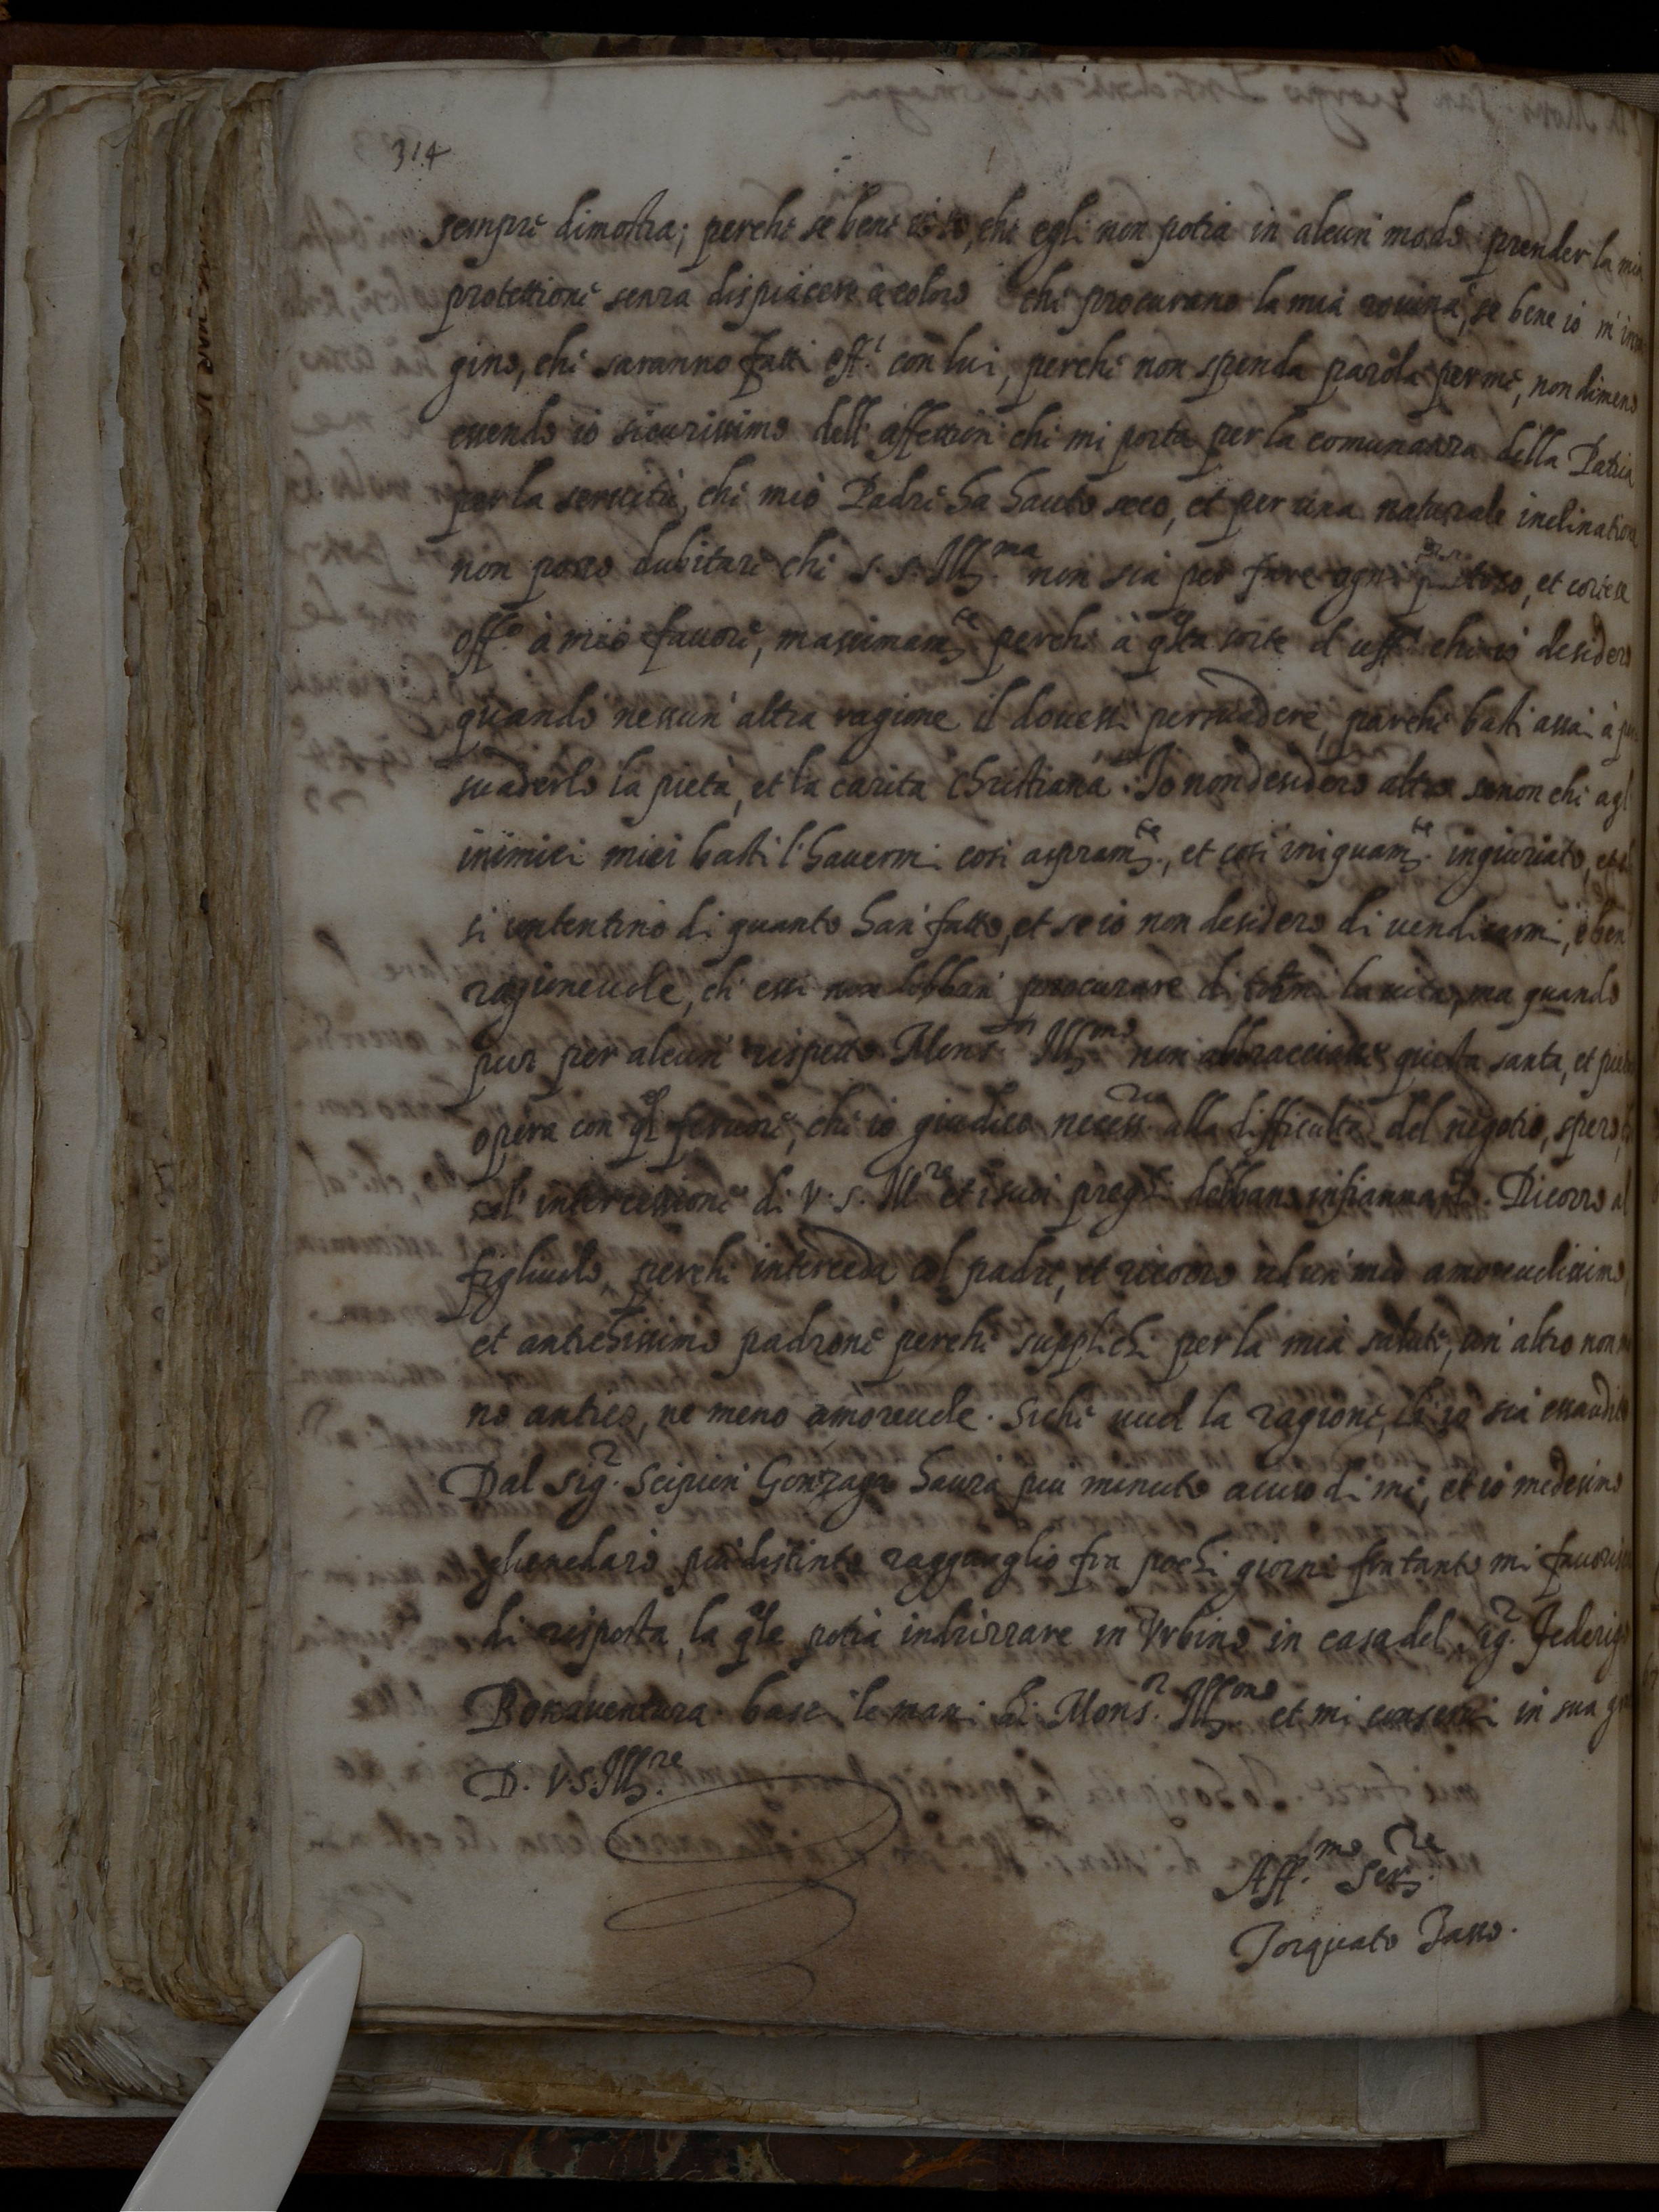 314
sempre dimostra; perche se bene io so, che egli non potia in alcun modo prender la mia
protettione senza dispiacere à coloro che procurano la mia rouina, se bene io m'ima
gino, che saranno fatti off.i con lui, perche non spenda parola per me, non dimeno
essendo io sicurissimo dell'affettion che mi porta per la comunanza della Patria
per la seruitù, che mio Padre ha hauto seco, et per una naturale inclinatione
non posso dubitare che s. s. Ill.ma non sia per fare ogni pietoso, et cortese
off.o à mio fauore, massimam.te perche à q.sta sorte d'uff.i che io desidero
quando nessun'altra ragione il douesse persuadere, parche basti assai à per
suaderlo la pietà, et la carita christiana. Io non desidero altro senon che agl
inimici miei basti l'hauermi cosi aspram.te, et cosi iniquam.te ingiuriato, et
si contentino di quanto han' fatto, et se io non desidero di uendicarmi, è ben
ragioneuole, ch'essi non debban' procurare di tormi la uita, ma quando
pur per alcun' rispetto Mons.or Ill.mo non abbracciasse questa santa, et pietosa
opera con q.l feruore, che io giudico necess.rio alla difficultà del negotio, spero,
l'intercessione di V. S. Ill.re et i suoi preghi debbano infiammarlo. Ricorro al
figliuolo, perche interceda col padre, et ricorro ad un' mio amoreuolissimo,
et antichissimo padrone perche supplichi per la mia salute, un' altro non m
no antico, ne meno amoreuole. Siche uuol la ragione, ch'io sia essaudito
Dal sig.r Scipion Gonzaga haurà piu minuto auiso di me, et io medesimo
glienedarò piu distinto ragguaglio fra pochi giorni fra tanto mi fauorisca
di risposta, la q.le potrà indrizzare in Vrbino in casa del sig.r Federigo
Bonauentura. basci le mani di Mons.r Ill.mo et mi conserui in sua gra
D. V. S. Ill.re
Aff.mo Ser.re
Torquato Tasso.